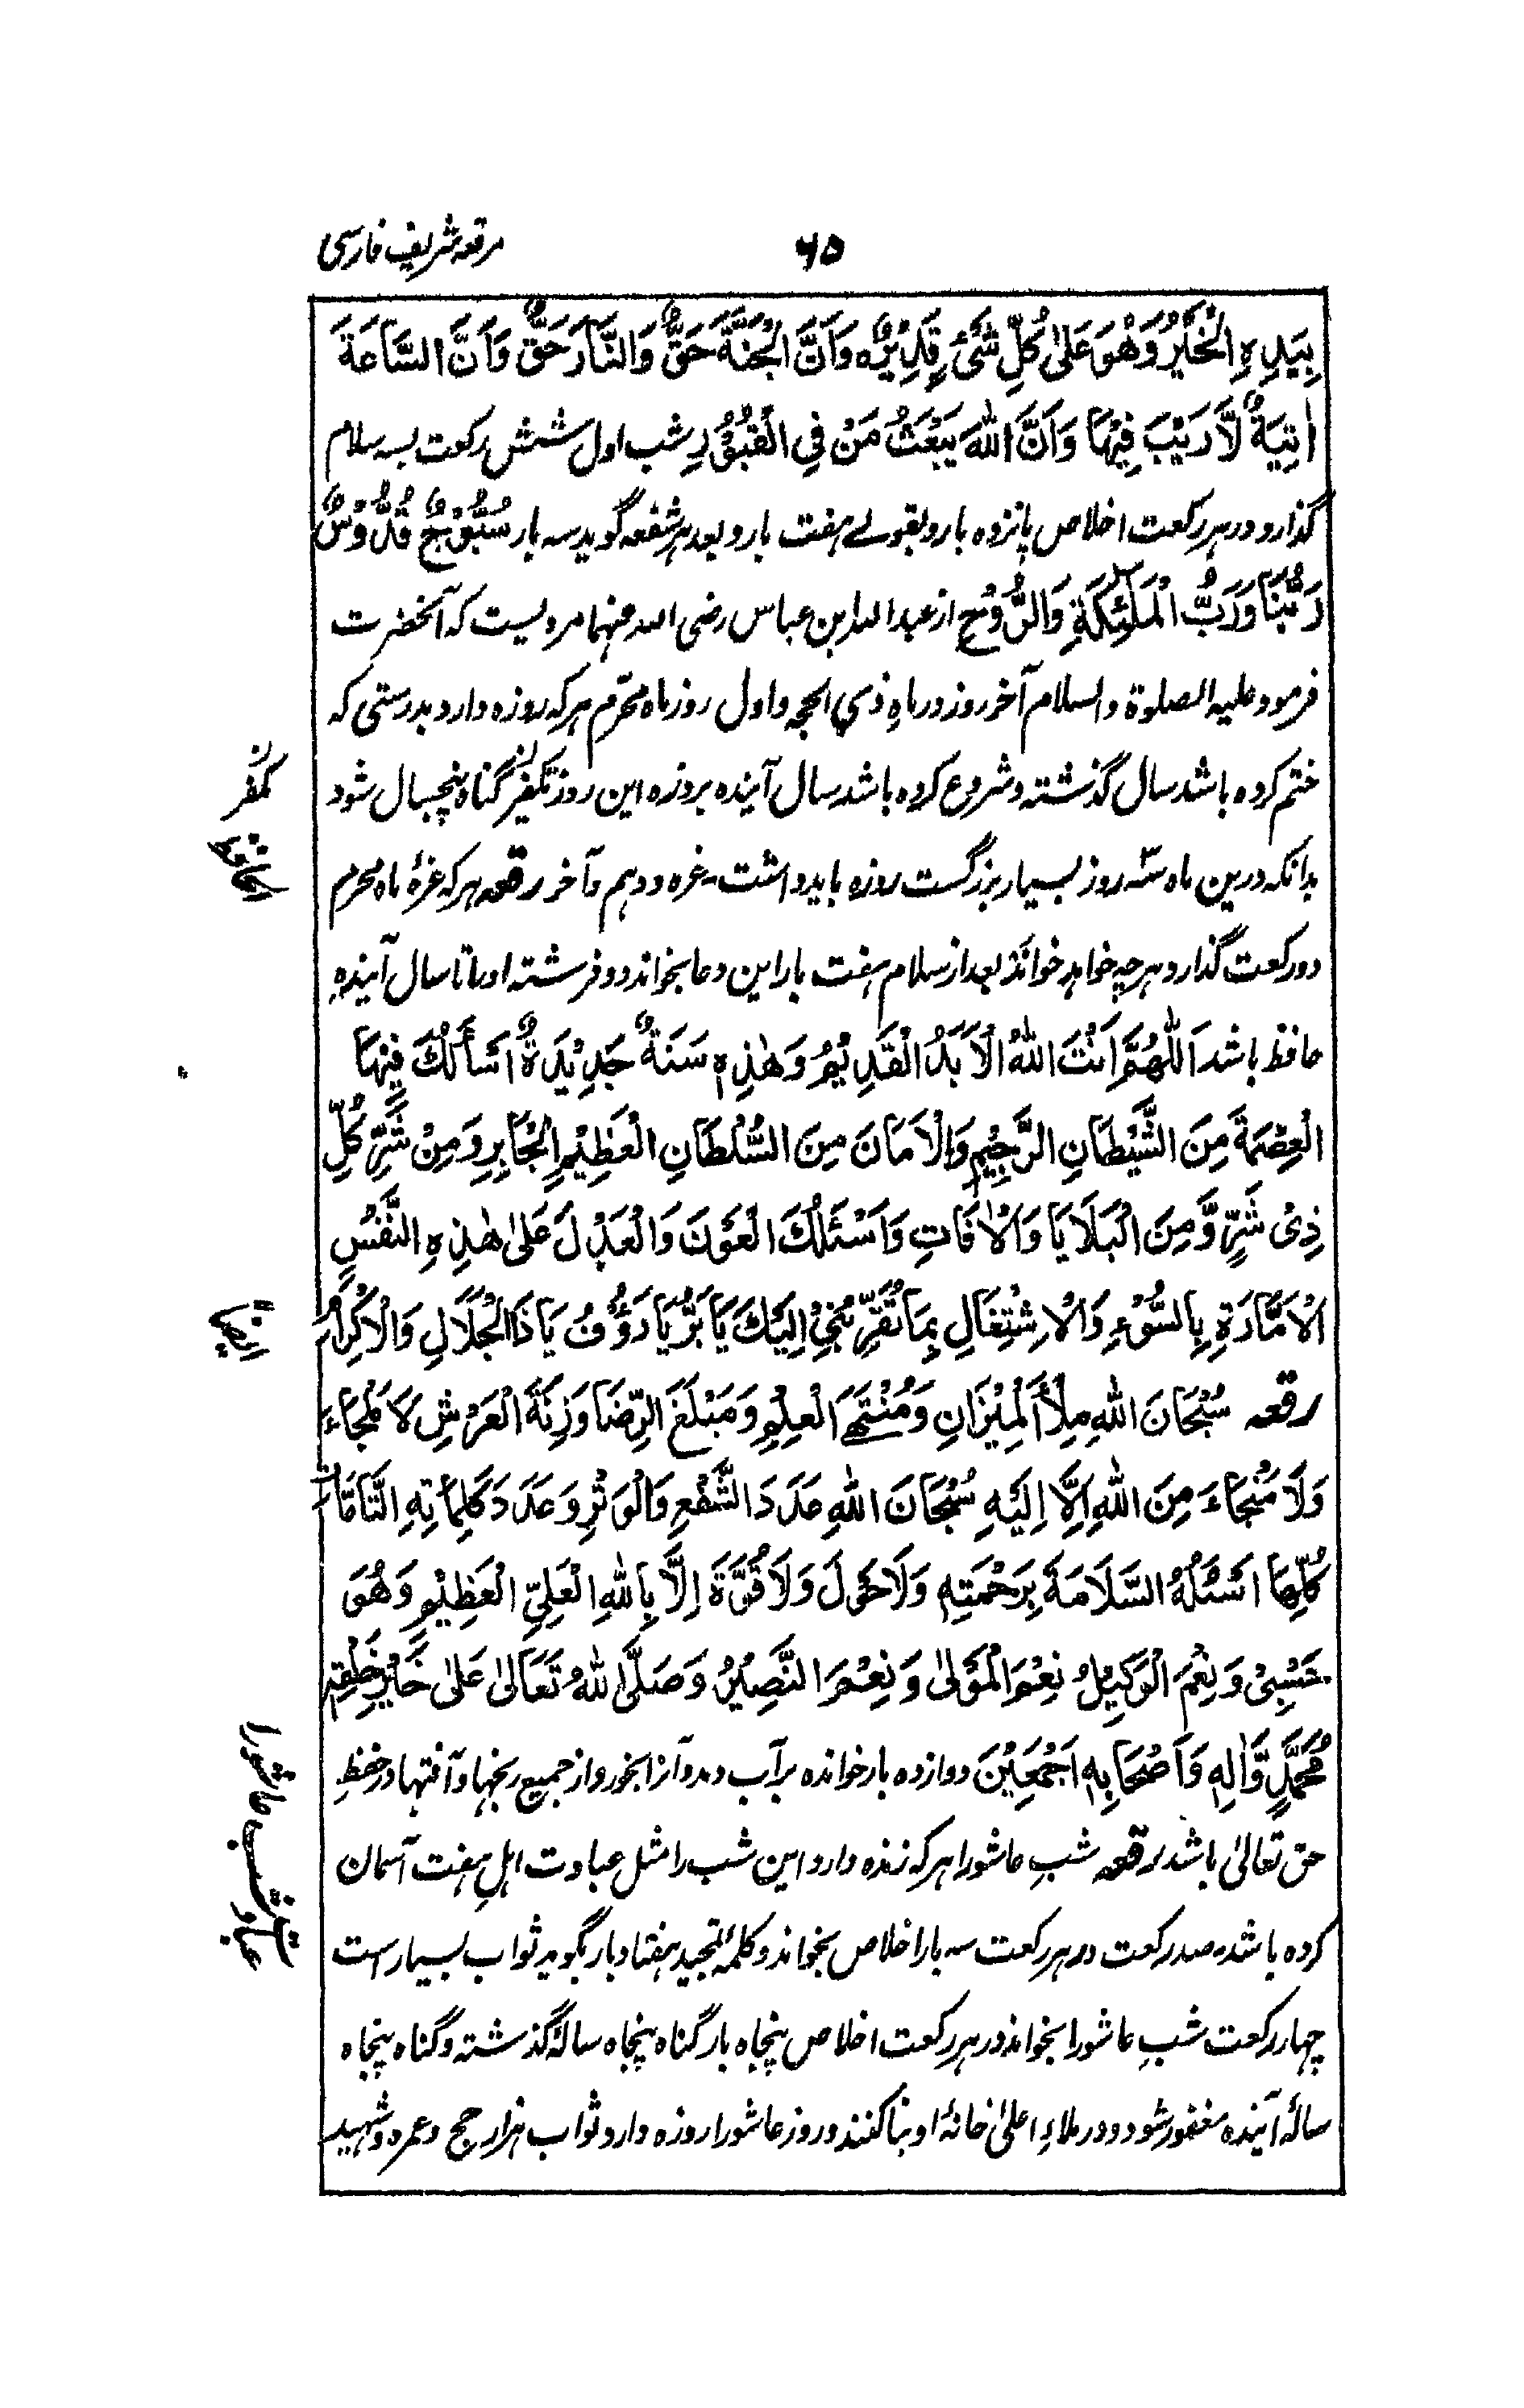 مرقعہ شریف فارسی
۶۵
بِیَدِهِ الْخَیْرُ وَهُوَ عَلٰی کُلِّ شَیْءٍ قَدِیْرٌ ہ وَاَنَّ الْجَنَّةَ حَقٌّ وَالنَّارَ حَقٌّ وَاَنَّ السَّاعَةَ
اٰتِیَةٌ لَّا رَیْبَ فِیْهَا وَاَنَّ اللّٰهَ یَبْعَثُ مَنْ فِی الْقُبُوْرِ شب اول شش رکعت بسہ سلام
گذارد و در ہر رکعت اخلاص پانزدہ بار و بقولے ہفت بار و بعد ہر شفعہ گوید سہ بار سُبُّوْحٌ قُدُّوْسٌ
رَبُّنَا وَرَبُّ الْمَلٰٓئِکَةِ وَالرُّوْحِ از عبد اللہ ابن عباس رضی اللہ عنہما مرویست کہ آنحضرت
فرمود علیہ الصلوۃ والسلام آخر روز در ماہِ ذی الحجہ و اول روز ماہ محرّم ہر کہ روزہ دارد بدرستی کہ
ختم کردہ باشد سال گذشتہ و شروع کردہ باشد سال آیندہ بروزہ این روز تکفیر گناہ پنجسال شود
بدانکہ درین ماہ سہ روز بسیار بزرگست روزہ باید داشت - غرہ و دہم و آخر رقعہ ہر کہ غرۂ ماہ محرم
دو رکعت گذارد ہر چہ خواہد خواند بعد از سلام ہفت بار این دعا بخواند دو فرشتہ اورا تا سال آیندہ
حافظ باشد اَللّٰهُمَّ اَنْتَ اللّٰهُ الْاَبَدُ الْقَدِیْمُ وَهٰذِهٖ سَنَةٌ جَدِیْدَةٌ اَسْأَلُکَ فِیْهَا
الْعِصْمَةَ مِنَ الشَّیْطَانِ الرَّجِیْمِ وَالْاَمَانَ مِنَ السُّلْطَانِ الْعَظِیْمِ الْجَابِرِ وَمِنْ شَرِّ کُلِّ
ذِیْ شَرٍّ وَّمِنَ الْبَلَایَا وَالْاٰفَاتِ وَاَسْئَلُکَ الْعَوْنَ وَالْعَدْلَ عَلٰی هٰذِهِ النَّفْسِ
الْاَمَّارَةِ بِالسُّوْءِ وَالْاِشْتِغَالِ بِمَا تُقَرِّبُنِیْ اِلَیْکَ یَا بَرُّ یَا رَؤُفُ یَا ذَا الْجَلَالِ وَالْاِکْرَامِ
رقعہ سُبْحَانَ اللّٰهِ مِلْأَ الْمِیْزَانِ وَمُنْتَهَی الْعِلْمِ وَمَبْلَغَ الرِّضَا وَزِنَةَ الْعَرْشِ لَا مَلْجَاءَ
وَلَا مَنْجَاءَ مِنَ اللّٰهِ اِلَّا اِلَیْهِ سُبْحَانَ اللّٰهِ عَدَدَ الشَّفْعِ وَالْوَتْرِ وَعَدَدَ کَلِمَاتِهِ التَّامَّاتِ
کُلِّهَا اَسْئَلُهُ السَّلَامَةَ بِرَحْمَتِهٖ وَلَا حَوْلَ وَلَا قُوَّةَ اِلَّا بِاللّٰهِ الْعَلِیِّ الْعَظِیْمِ وَهُوَ
حَسْبِیْ وَنِعْمَ الْوَکِیْلُ نِعْمَ الْمَوْلٰی وَنِعْمَ النَّصِیْرُ وَصَلَّی اللّٰهُ تَعَالٰی عَلٰی خَیْرِ خَلْقِهٖ
مُحَمَّدٍ وَّاٰلِهٖ وَاَصْحَابِهٖ اَجْمَعِیْنَ دوازدہ بار خواندہ بر آب دمد و آنرا بخورد از جمیع رنجہا و آفتہا در حفظِ
حق تعالیٰ باشد رقعہ شبِ عاشورا ہر کہ زندہ دارد این شب را مثل عبادت اہلِ ہفت آسمان
کردہ باشد صد رکعت در ہر رکعت سہ بار اخلاص بخواند و کلمۂ تمجید ہفتاد بار بگوید ثواب بسیار است
چہار رکعت شبِ عاشورا بخواند در ہر رکعت اخلاص پنجاہ بار گناہ پنجاہ سالۂ گذشتہ و گناہ پنجاہ
سالۂ آیندہ مغفور شود و در ملاءِ اعلیٰ خانۂ او بنا کنند و روز عاشورا روزہ دارد ثواب ہزار حج و عمرہ و شہید
لمحافظ
ایضاً
عبادت شب عاشورا